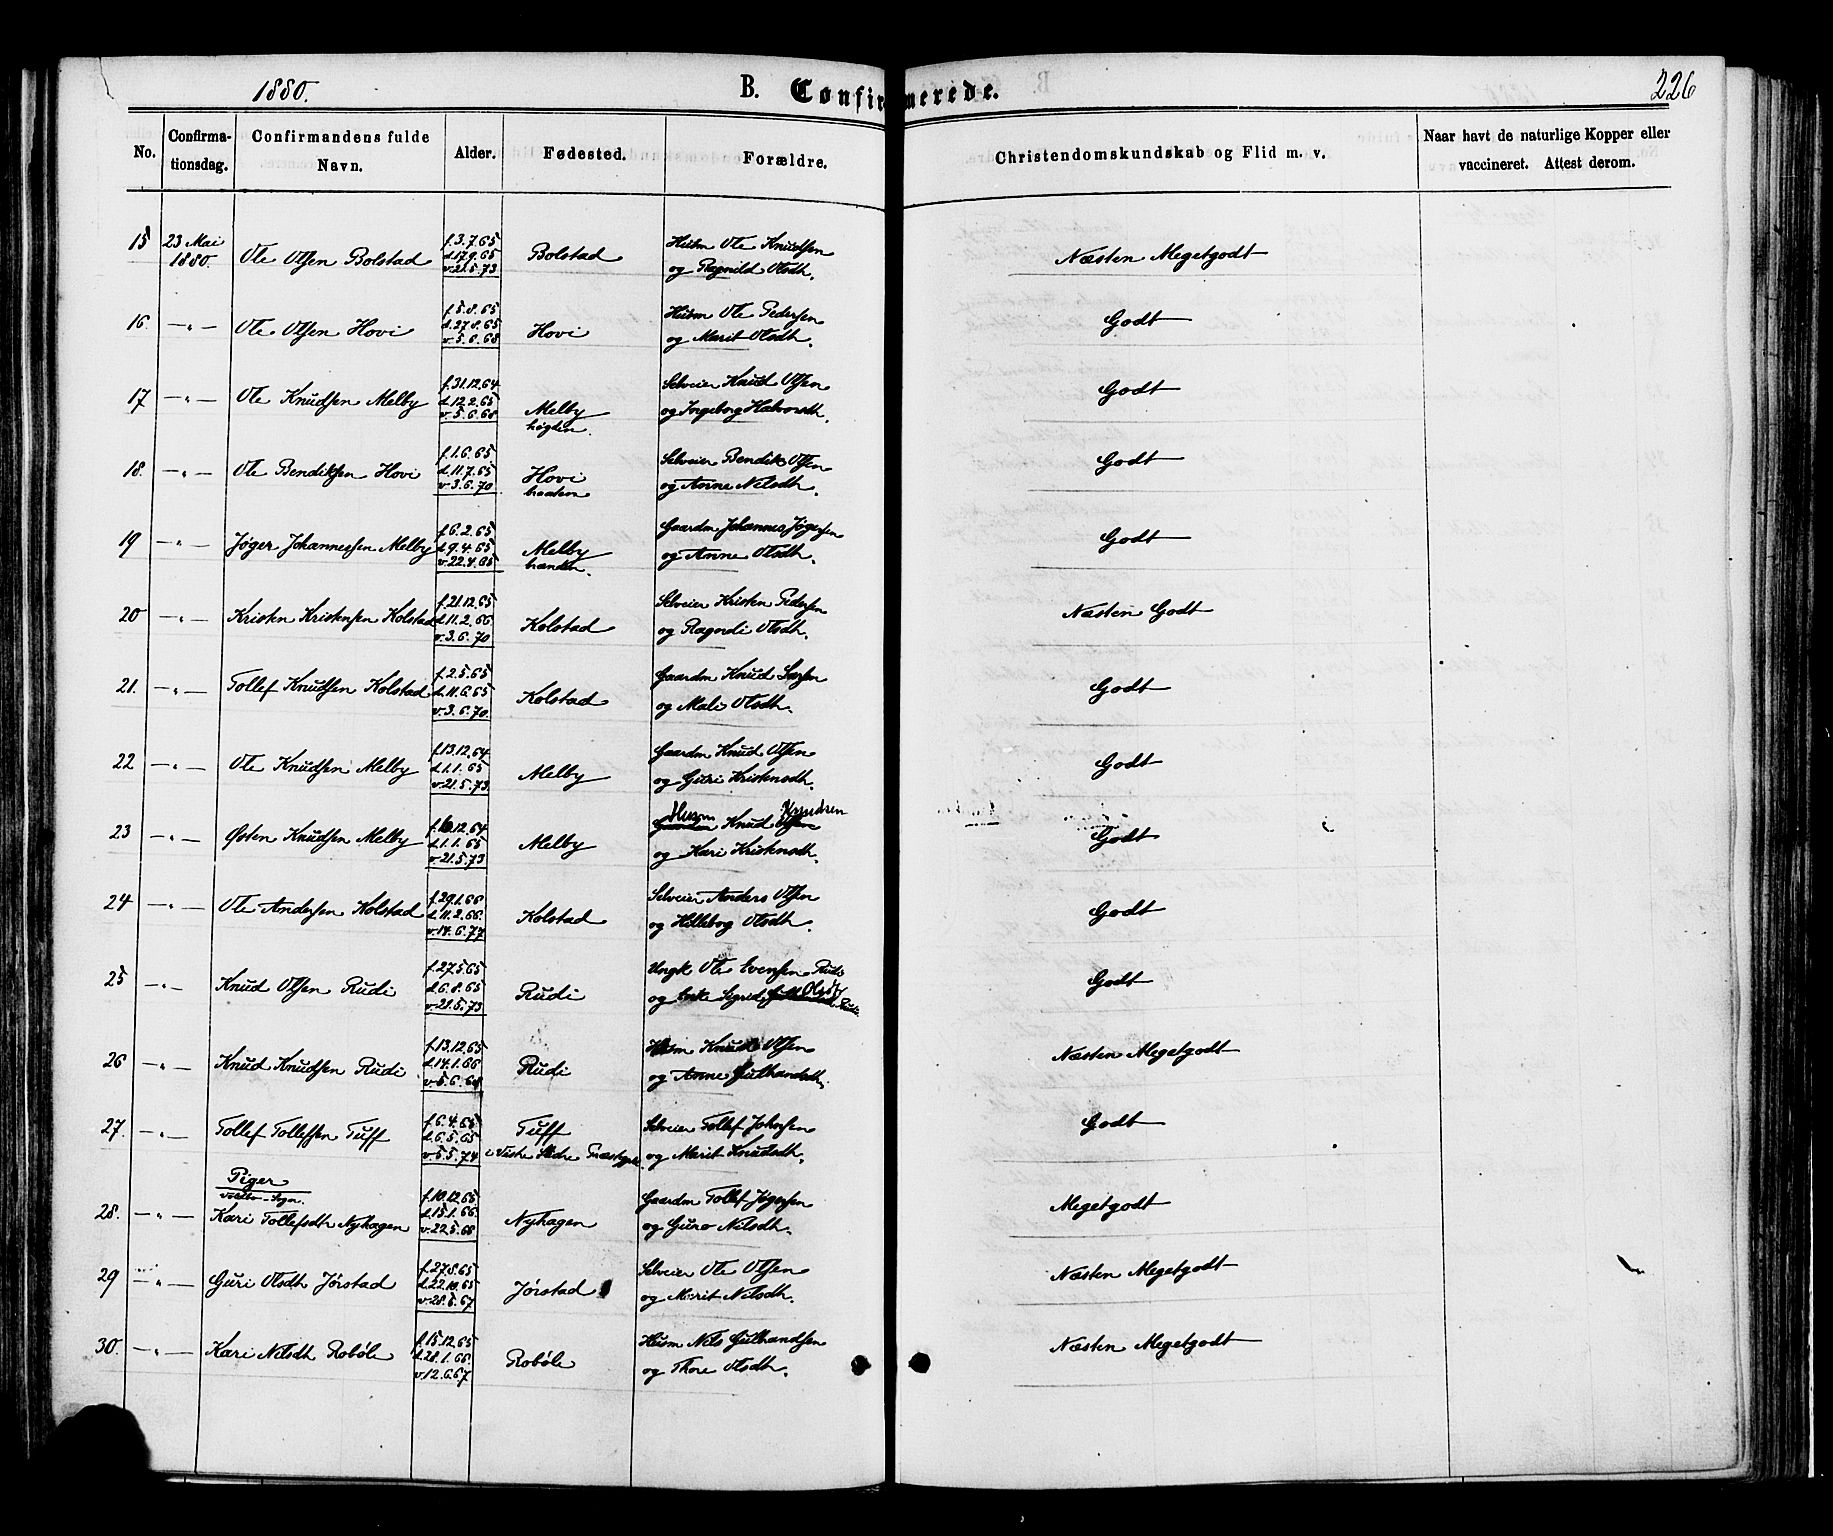 1880.
B. Confirmerede.
226
No.
Confirma-
tionsdag.
Confirmandens fulde
Navn.
Alder.
Fødested.
Forældre.
Christendomskundskab og Flid m. v.
Naar havt de naturlige Kopper eller
vaccineret. Attest derom.
15 23 Mai 1880. Ole Olsen Bolstad f. 3.7.65 d. 17.9.65 v. 21.5.73 Bolstad Husm Ole Knudsen og Ragnild Olsdh. Næsten Megetgodt
16. —"— Ole Olsen Hovi f. 5.8.65 d. 27.8.65 v. 5.6.68 Hovi Husm Ole Pedersen og Marit Olsdh. Godt
17 —"— Ole Knudsen Melby f. 31.12.64 d. 12.2.65 v. 5.6.68 Melby høgden. Selveier Knud Olsen og Ingeborg Halvorsdh. Godt
18. —"— Ole Bendiksen Hovi f. 1.6.65 d. 11.7.65 v. 3.6.70 Hovi braaten Selveier Bendik Olsen og Anne Nilsdh. Godt
19 —"— Jøger Johannessen Melby f. 6.2.65 d. 9.4.65 v. 22.4.65 Melby Gaardm Johannes Jøgersen og Anne Olsdh. Godt
20 —"— Kristen Kristensen Kolstad f. 21.12.65 d. 11.2.66 v. 3.6.70 Kolstad Selveier Kristen Pedersen og Ragndi Olsdh. Næsten Godt
21. —"— Tollef Knudsen Kolstad f. 2.5.65 d. 11.6.65 v. 3.6.70. Kolstad Gaardm Knud og Mali Olsdh. Godt
22 —"— Ole Knudsen Melby f. 13.12.64 d. 1.1.65 v. 21.5.73 Melby Gaardm Knud Olsen og Guri Kristensdh. Godt
23 —"— Østen Knudsen Melby f. 10.12.64 d. 1.1.65 v. 21.5.73 Melby Husm Knudsen Gaardm Knud Olsen og Kari Kristensdh. Godt
24 —"— Ole Andersen Kolstad f. 29.1.66 d. 11.2.66. v. 14.6.77 Kolstad Selveier Anders Olsen og Hilleborg Olsdh. Godt
25 —"— Knud Olsen Rudi f. 27.5.65 d. 6.8.65 v. 21.5.73 Rudi Ungk Ole Evensen Rudi og Enke Sigrid Olsdtr Rudi. Godt
26 —"— Knud Knudsen Rudi f. 13.12.65 d. 14.1.66 v. 5.6.68 Rudi Husm Knud Olsen og Anne Gulbrandsdh. Næsten Megetgodt
27. —"— Tollef Tollefsen Tuff f. 6.4.65 d. 6.5.65 v. 5.5.74 Tuff i Vestre Slidre Præstegjeld. Selveier Tollef Johnsen og Marit Knudsdh. Godt
Piger
28. —"— Kari Tollefsdh Nyhagen f. 10.12.65 d. 15.1.66. v. 22.5.68 Nyhagen Gaardm Tollef Jøgersen og Guro Nilsdh. Megetgodt
29 —"— Guri Olsdh Jørstad f. 27.8.65 d. 22.10.65 v. 28.5.67 Jørstad Selveier Ole Olsen og Marit Nilsdh. Næsten Megetgodt
30. —"— Kari Nilsdh Robøle f. 15.12.65 d. 28.1.66. v. 12.6.67 Robøle Husm Nils Gulbrandsen og Thore Olsdh. Næsten Megetgodt